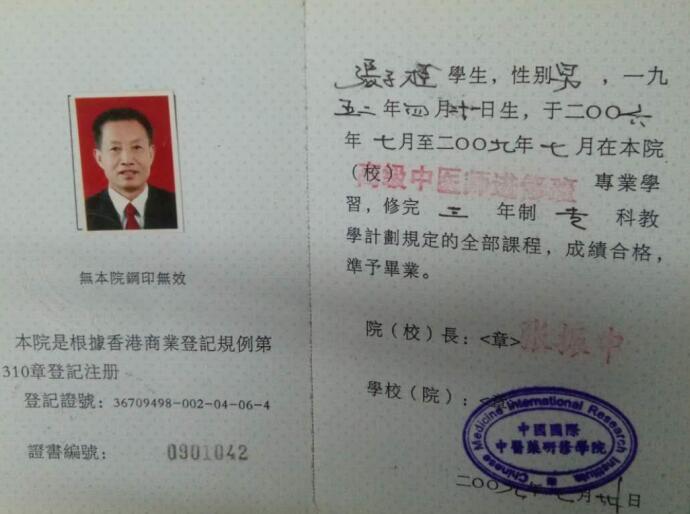 無本院鋼印無效
本院是根據香港商業登記規例第
310章登記注册
登記證號：36709498-002-04-06-4
證書編號：0901042
張子 學生，性别男，一九
五二年四月十日生，于二〇〇六
年七月至二〇〇九年七月在本院
（校）高級中医师进修班 專業學
習，修完 三 年制 专 科教
學計劃規定的全部課程，成績合格，
準予畢業。
院（校）長：<章>张振中
學校（院）：<章>
Chinese Medicine International Research Institute
中國國際
中醫藥研修學院
二〇〇九年七月 日